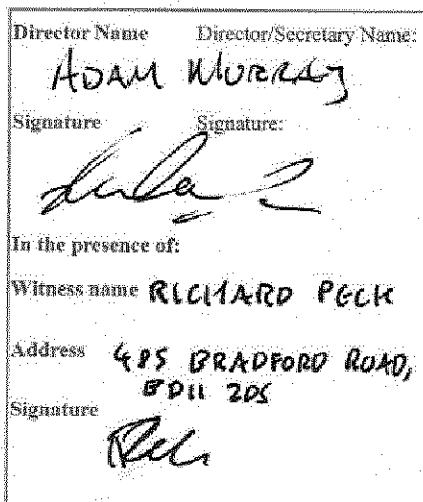 Director Name Director/Secretary Name:
ADAM MURRAY
Signature Signature:
In the presence of:
Witness name RICHARD PECK
Address 485 BRADFORD ROAD,
BD11 2DS
Signature